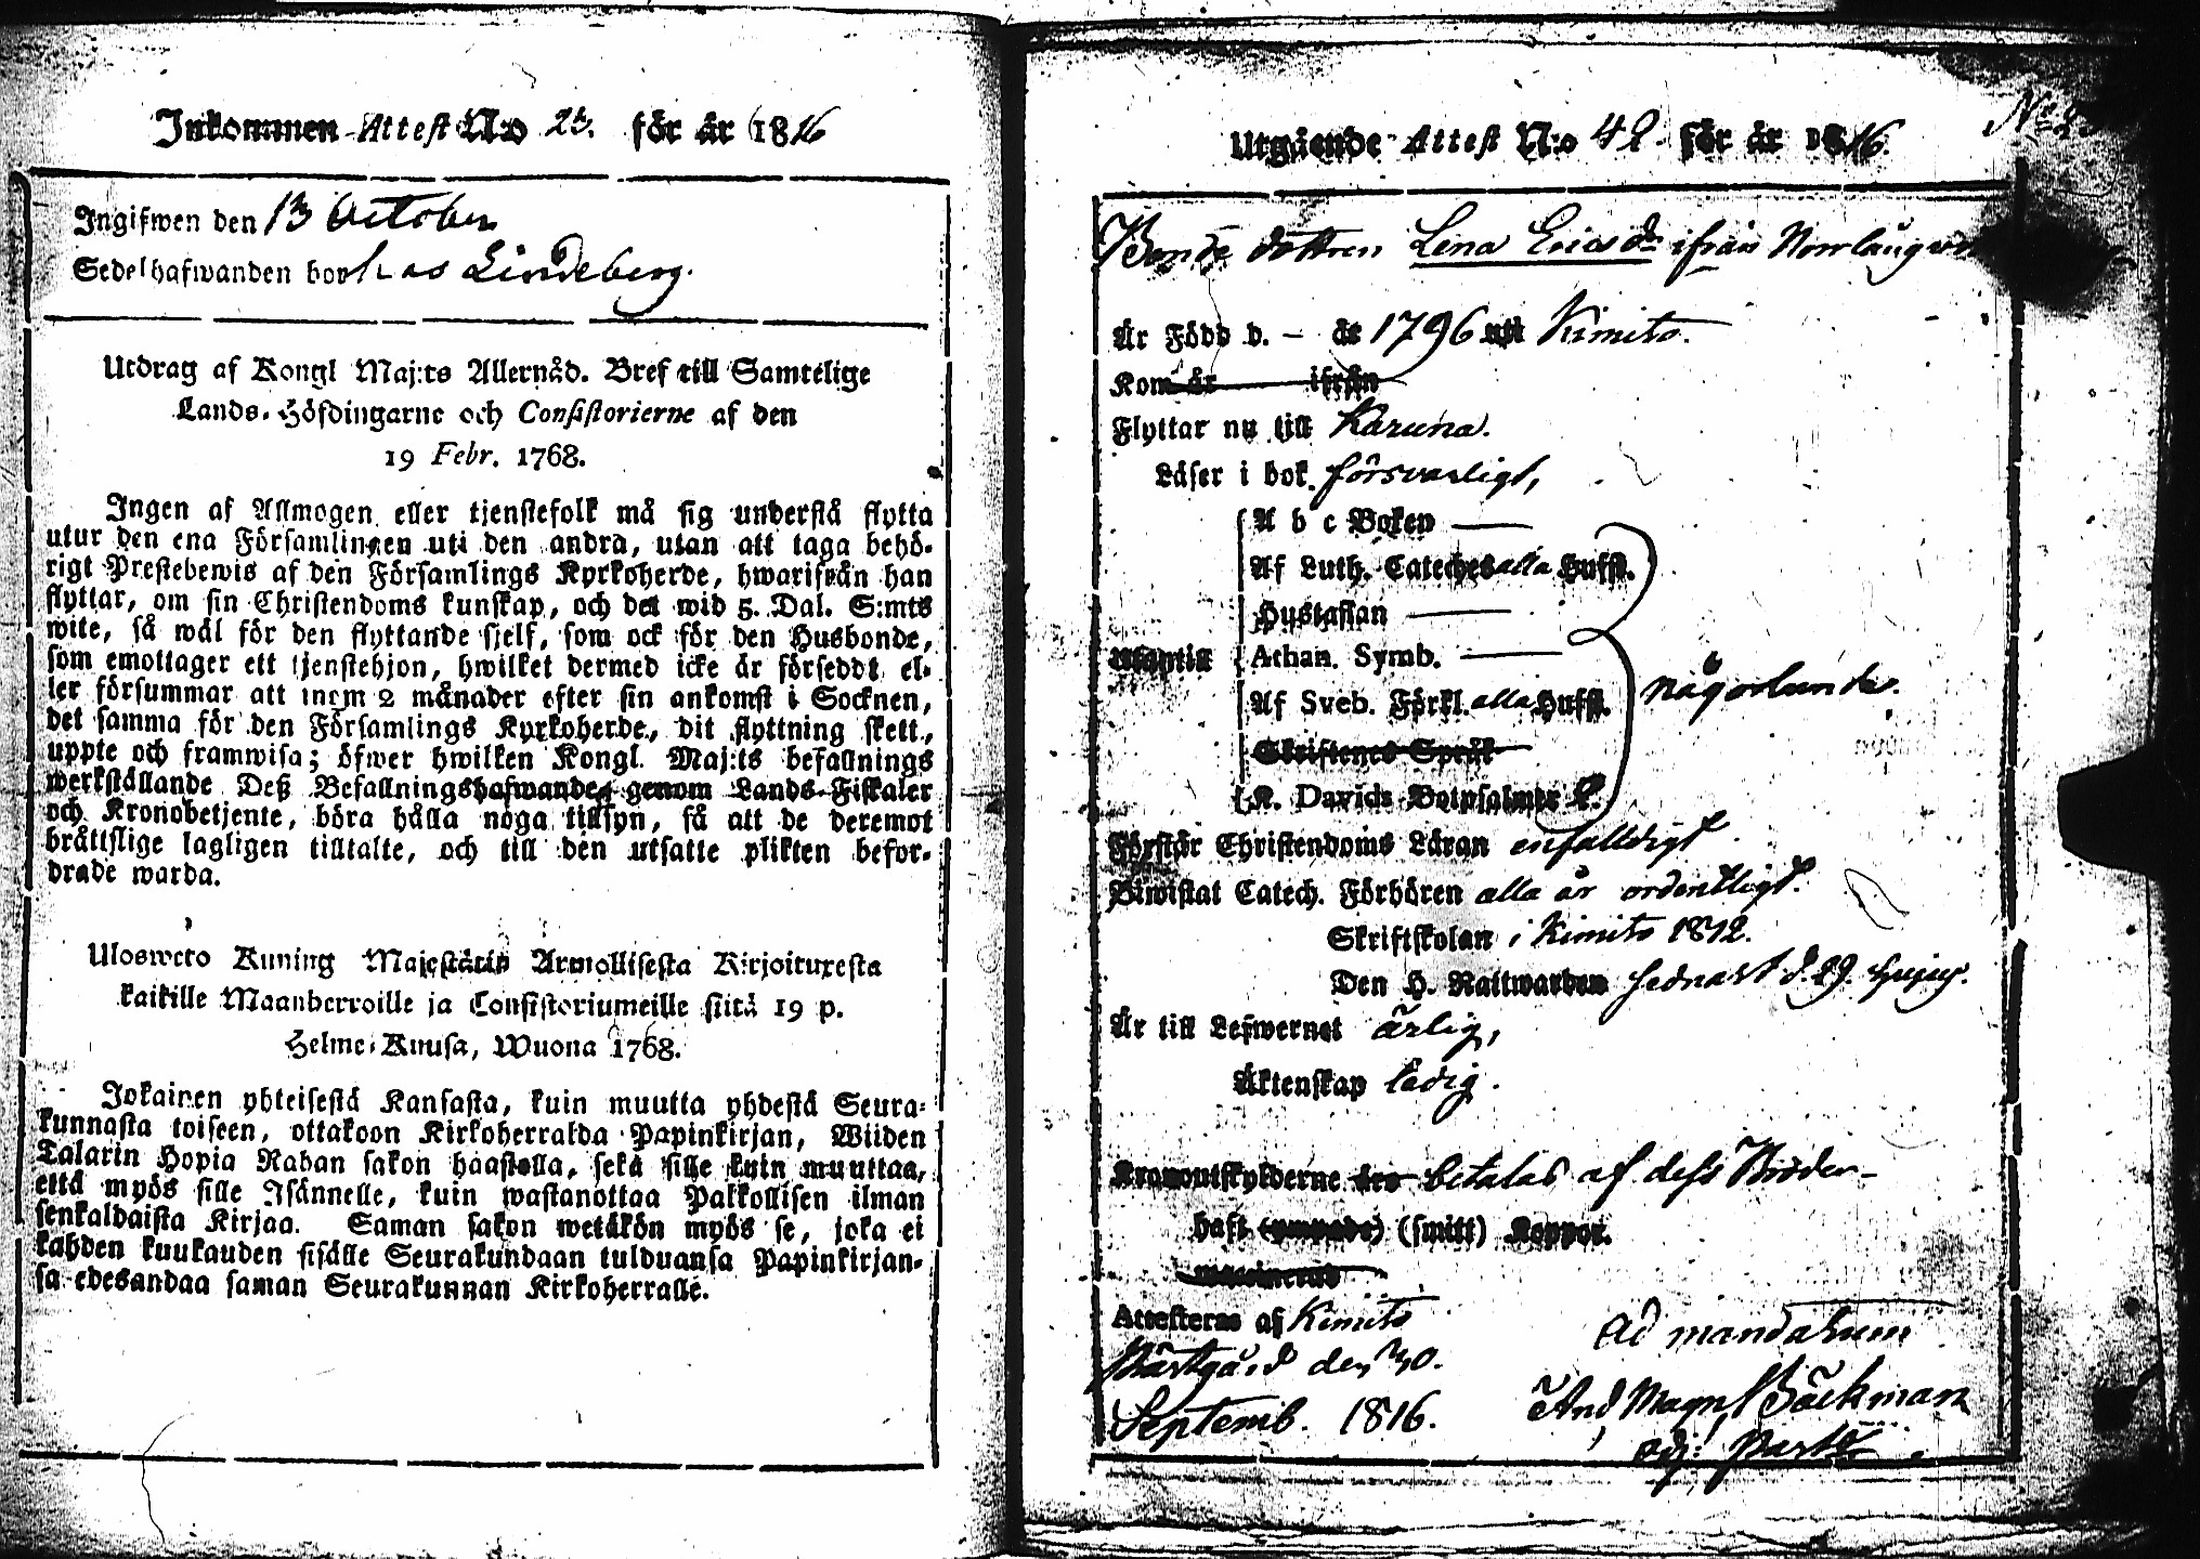 Inkommen Attest N:o 25. för år 1816
Ingifwen den 13 October
Sedelhafwanden bor hos Lindeberg.
Utdrag af Kongl Maj:ts Allernåd. Bref till Samtelige
Lands-Höfdingarne och Consistorierne af den
19 Febr. 1768.
Ingen af Allmogen eller tjenstefolk må sig understå flytta
utur den ena Församlingen uti den andra, utan att taga behö-
rigt Prestebewis af den Församlings Kyrkoherde, hwarifrån han
flyttar, om sin Christendoms kunskap, och det wid 5. Dal. S:mts
wite, så wäl för den flyttande sjelf, som ock för den Husbonde,
som emottager ett tjenstehjon, hwilket dermed icke är förseddt el-
ler försummar att inom 2 månader efter sin ankomst i Socknen,
det samma för den Församlings Kyrkoherde, dit flyttning skett,
uppte och framwisa; öfwer hwilken Kongl. Maj:ts befallnings
werkställande Deß Befallningshafwande genom Lands-Fiskaler
och Kronobetjente, böra hålla noga tillsyn, så att de deremot
bråttslige lagligen tilltalte, och till den utsatte plikten befor-
drade warda.
Ulosweto Kuning Majestätin Armollisesta Kirjoituxesta
kaikille Maanherroille ja Consistoriumeille siitä 19 p.
Helme-Kuusa, Wuona 1768.
Jokainen yhteisestä Kansasta, kuin muutta yhdestä Seura-
kunnasta toiseen, ottakoon Kirkoherralda Papinkirjan, Wiiden
Talarin Hopia Rahan sakon haastolla, sekä sille kuin muuttaa,
että myös sille Isännelle, kuin wastanottaa Palkollisen ilman
senkaldaista Kirjaa. Saman sakon wetäkön myös se, joka ei
kahden kuukauden sisälle Seurakundaan tulduansa Papinkirjan-
sa edesandaa saman Seurakunnan Kirkoherralle.
Utgående Attest N:o 42. för år 1816.
Bonde dottren Lena Ericsdr ifrån Norrlångwik
Är Född d. – år 1796 uti Kimito.
Kom år ifrån
Flyttar nu till Karuna.
Läser i bok försvarligt,
A b c Boken
Af Luth. Cateches alla Hufst.
Hustaflan
Utantill Athan. Symb.
Af Sveb. Förkl. alla Hufst. någorlunda.
Skriftenes Språk
K. Davids Botpsalmer 2.
Förstår Christendoms Läran enfalldigt
Biwistat Catech. Förhören alla år ordentligt.
Skriftskolan i Kimito 1812.
Den H. Nattwarden sednast d. 29. hujus.
Är till Lefwernet ärlig,
Äktenskap ledig.
Kronoutskylderne betalas af dess Bröder
haft (ympade) (smitt) Koppor.
vaccinerad
Attesteras af Kimito
Prästgård den 30.
Septemb. 1816.
Ad mandatum
And. Magn. Bäckman
adj. Past.